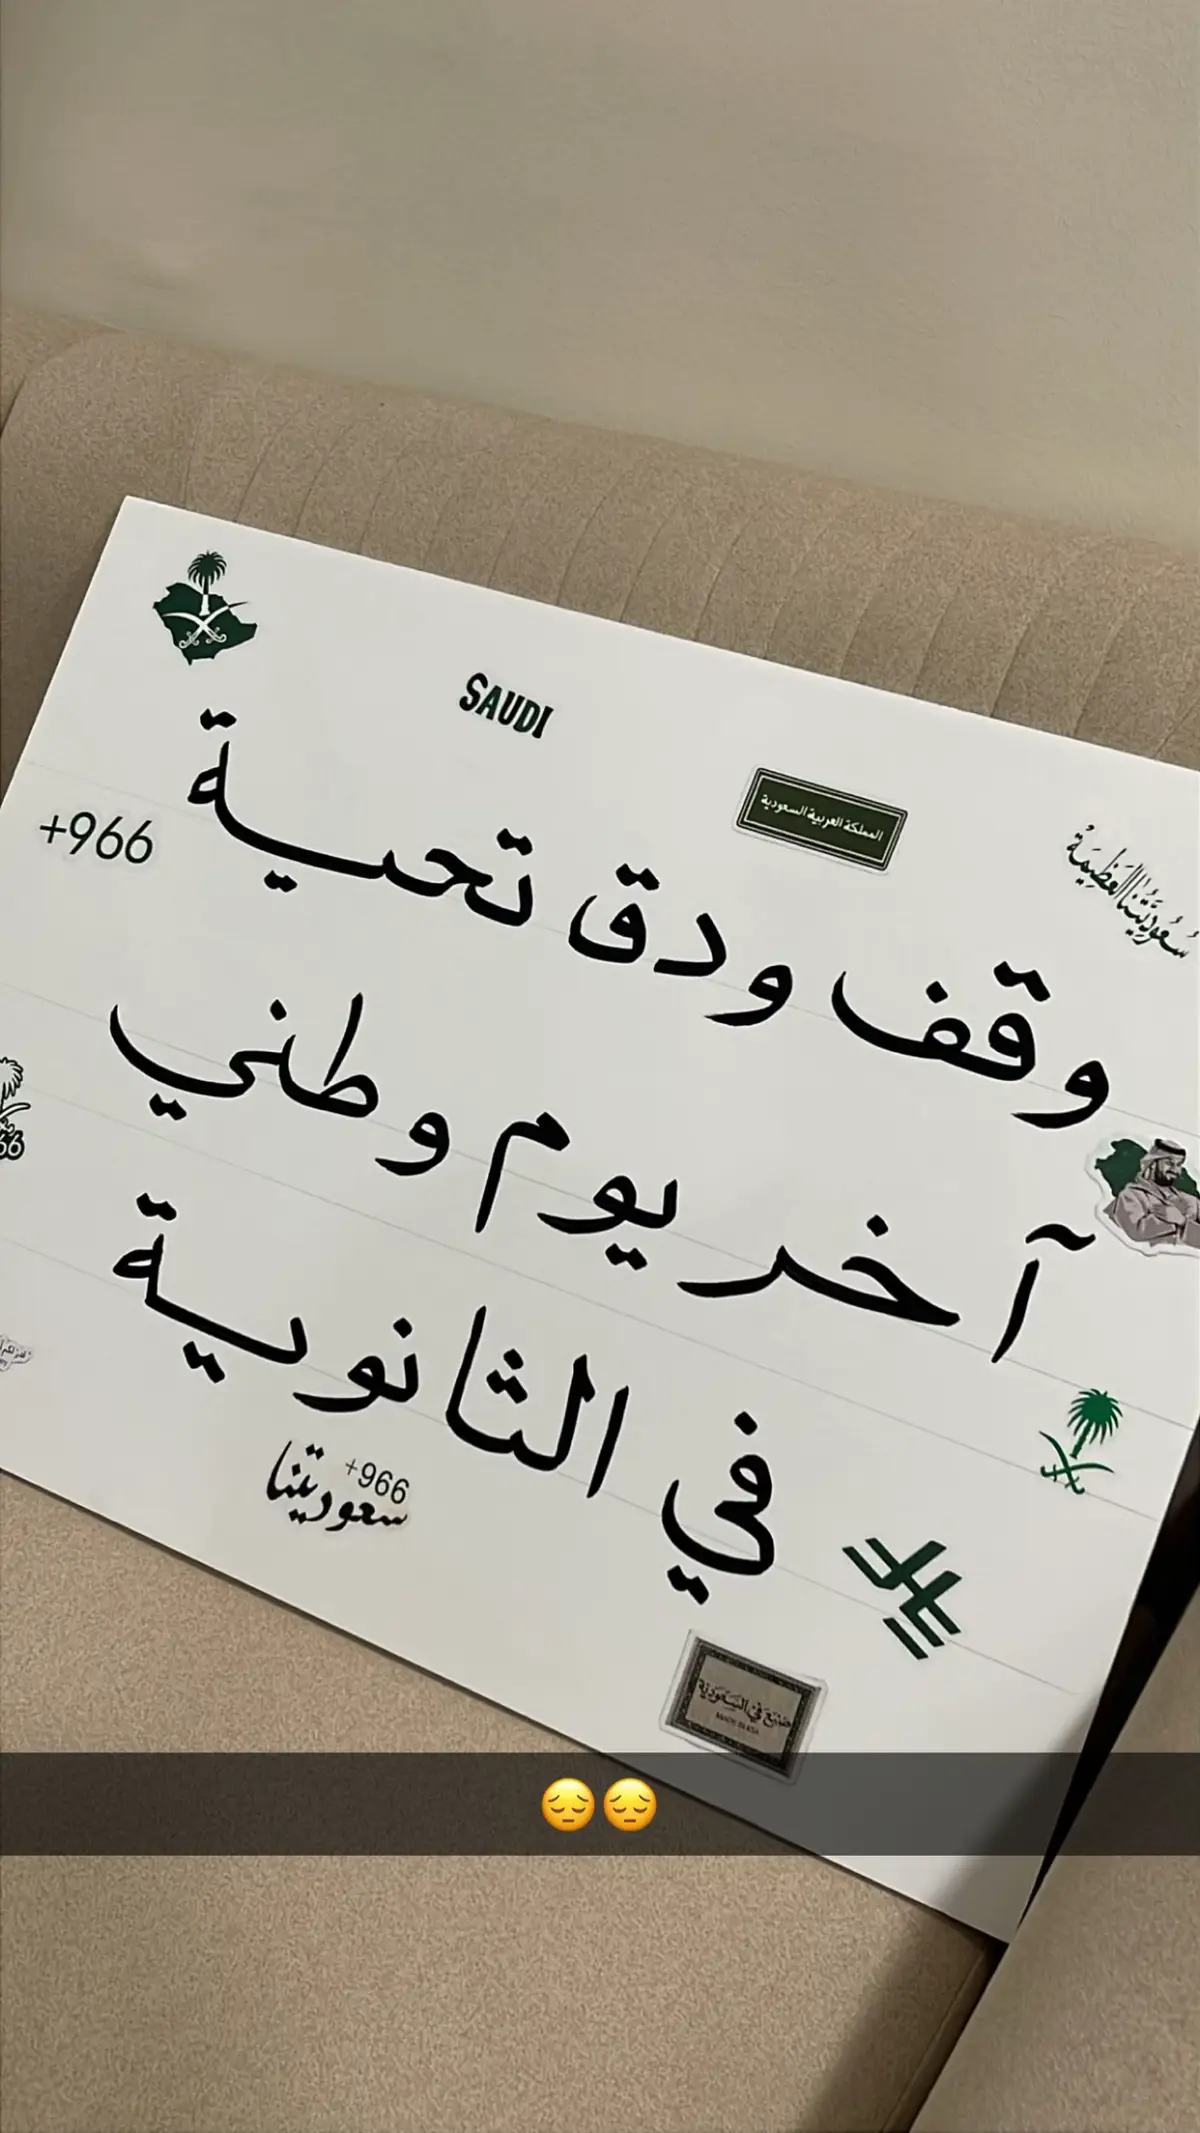 SAUDI
المملكة العربية السعودية
سُعُودِيَّتُنا العَظِيمَة
+966
وقف ودق تحية
آخر يوم وطني
في الثانوية
+966
سعوديتنا
صُنِعَ في السعودية
MADE IN KSA
😔😔